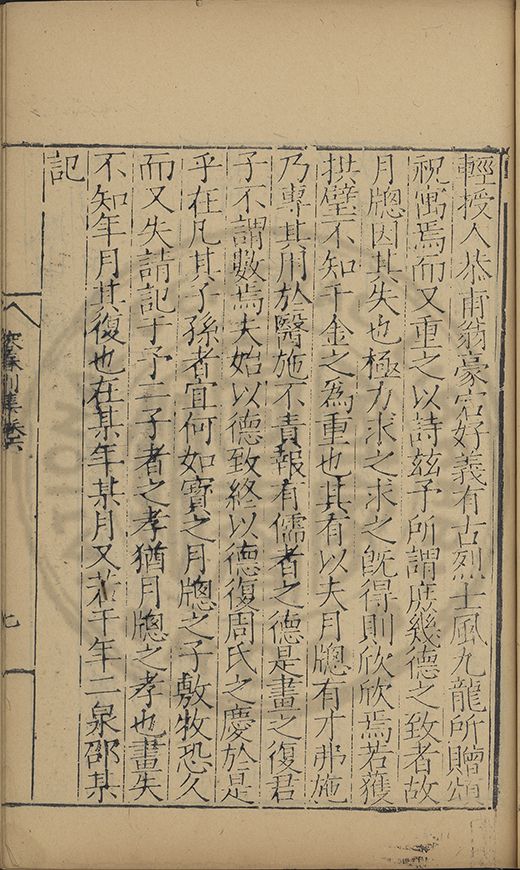 輕授人恭甫翁豪宕好義有古烈士風九龍所贈頌
祝寓焉而又重之以詩玆予所謂庶幾德之致者故
月牎因其失也極力求之求之旣得則欣欣焉若獲
拱璧不知千金之為重也其有以夫月牎有才弗施
乃專其用於醫施不責報有儒者之德是畫之復君
子不謂數焉夫始以德致終以德復周氏之慶於是
乎在凡其子孫者宜何如寶之月牎之子敷牧恐久
而又失請記于予二子者之孝猶月牎之孝也畫失
不知年月其復也在某年某月又若干年二泉邵某
記
容春別集卷六
七